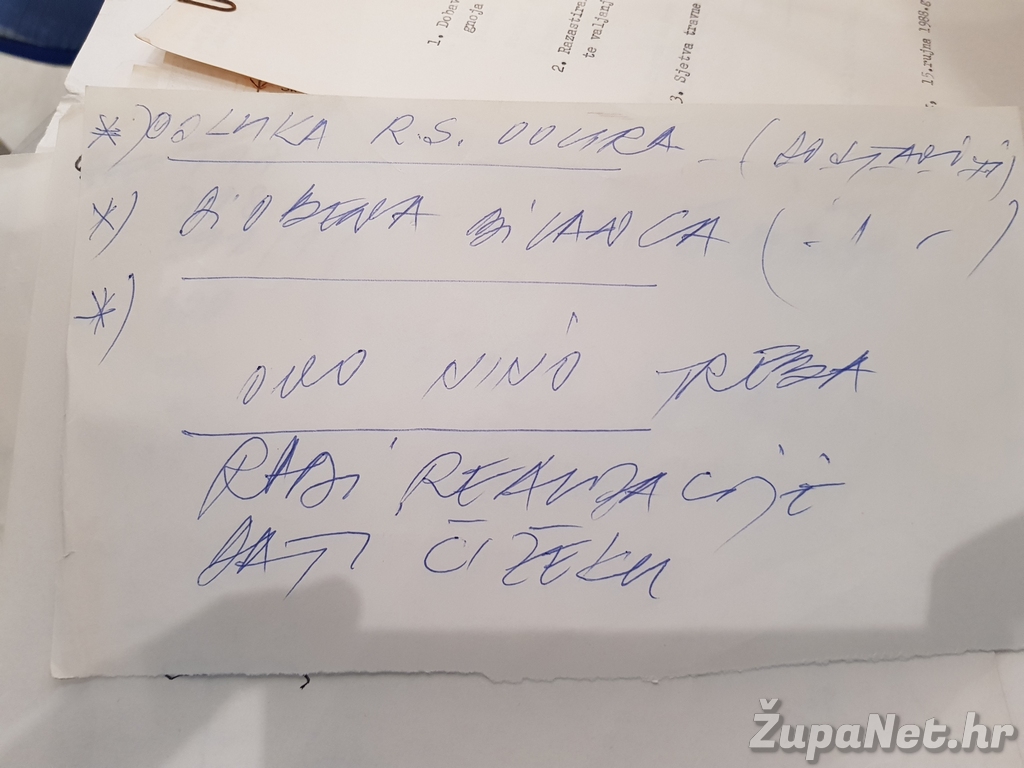 1. Dobav
gnoja
2. Razastiran
te valjanj
3. Sjetva travne
15.rujna 1988.g
*) ODLUKA R.S. ODVIRA - (DOSTAVITI)
*) DIOBENA BILANCA (- 11 -)
*)
OVO NINO TREBA
RADI REALIZACIJE
DATI ČIŽEKU
ŽupaNet.hr